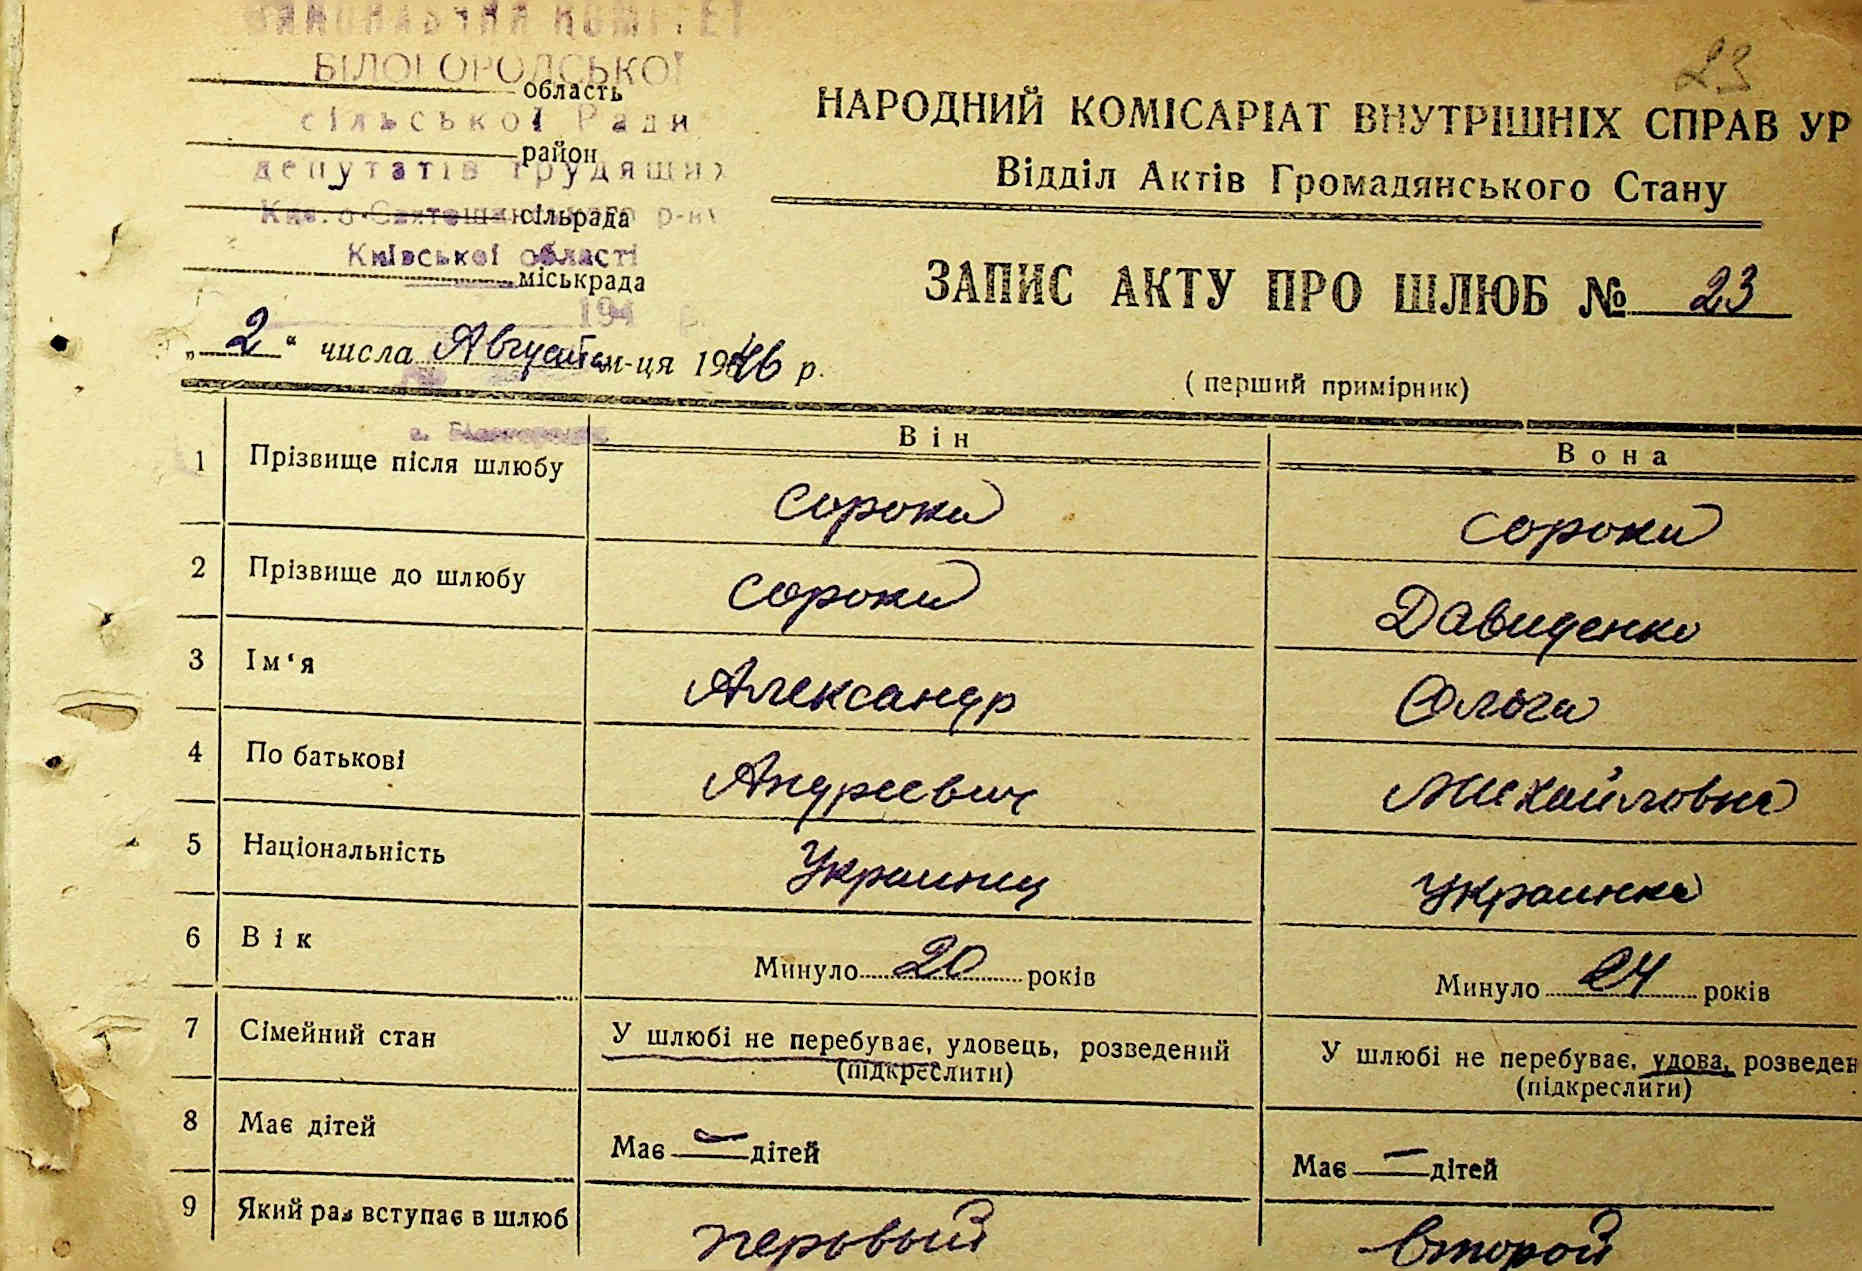 ВИКОНАВЧИЙ КОМІТЕТ
БІЛОГОРОДСЬКОЇ
область
сільської Ради
район
депутатів трудящих
сільрада р-ну
Київської області
міськрада
194 р.
23
НАРОДНИЙ КОМІСАРІАТ ВНУТРІШНІХ СПРАВ УР
Відділ Актів Громадянського Стану
ЗАПИС АКТУ ПРО ШЛЮБ № 23
„2“ числа Августа м-ця 1946 р.
(перший примірник)
Він Вона
1 Прізвище після шлюбу Сорока Сорока
2 Прізвище до шлюбу Сорока Давиденко
3 Ім‘я Александр Ольга
4 По батькові Андреевич Михайловна
5 Національність Украинец Украинка
6 Вік Минуло 20 років Минуло 24 років
7 Сімейний стан У шлюбі не перебуває, удовець, розведений У шлюбі не перебуває, удова, розведен
(підкреслити) (підкреслити)
8 Має дітей Має — дітей Має — дітей
9 Який раз вступає в шлюб первый второй